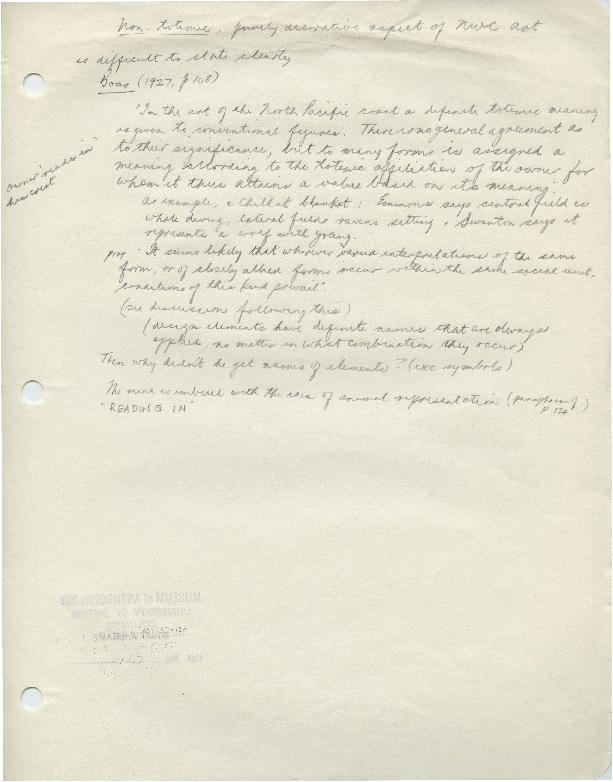 Non-totemic, purely decorative aspect of NWC art
is difficult to state clearly
Boas (1927, p 108)
"In the art of the North Pacific coast a definite totemic meaning
is given to conventional figures. There is no general agreement as
to their significance, but to many forms is assigned a
meaning according to the totemic affiliation of the owner for
whom it thus attains a value based on its meaning.
owner "reads in"
his crest
As example, a Chilkat blanket: Emmons says central field is
whale diving, lateral fields ravens sitting. Swanton says it
represents a wolf with young.
p109 "It seems likely that wherever varied interpretations of the same
form, or of closely allied forms occur within the same social unit,
conditions of this kind prevail"
(see discussion following this)
(design elements have definite names that are always
applied no matter in what combination they occur)
Then why didn't he get names of elements? (exc symbols)
The mind is imbued with the idea of animal representation (paraphrase of
p. 124)
"READING IN"
MUSEUM of ANTHROPOLOGY
UNIVERSITY OF BRITISH
COLUMBIA
Cat. No.